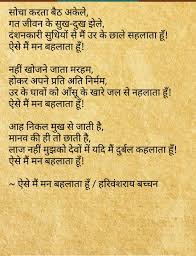 सोचा करता बैठ अकेले,
गत जीवन के सुख-दुख झेले,
दंशनकारी सुधियों से मैं उर के छाले सहलाता हूँ!
ऐसे मैं मन बहलाता हूँ!
नहीं खोजने जाता मरहम,
होकर अपने प्रति अति निर्मम,
उर के घावों को आँसू के खारे जल से नहलाता हूँ!
ऐसे मैं मन बहलाता हूँ!
आह निकल मुख से जाती है,
मानव की ही तो छाती है,
लाज नहीं मुझको देवों में यदि मैं दुर्बल कहलाता हूँ!
ऐसे मैं मन बहलाता हूँ!
~ ऐसे मैं मन बहलाता हूँ / हरिवंशराय बच्चन